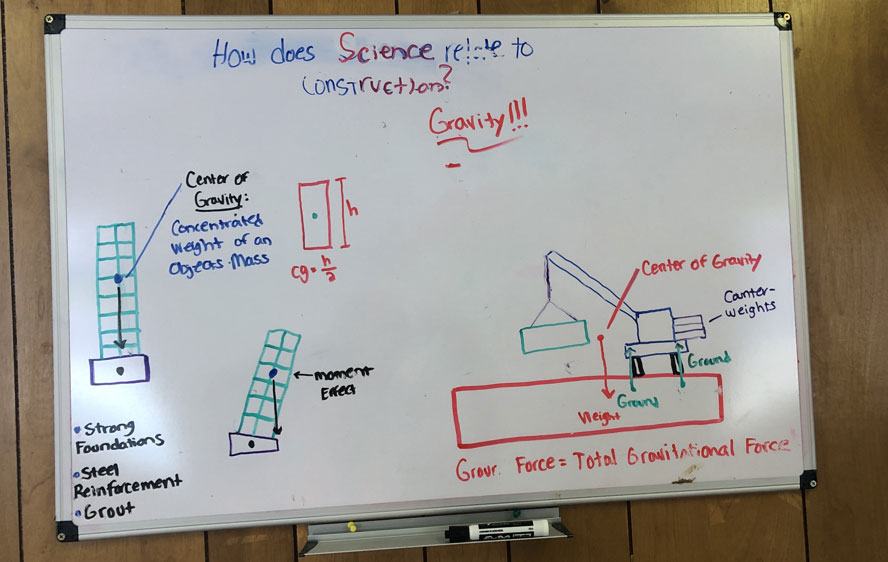 How does Science relate to
construction?
Gravity!!!
Center of
Gravity:
Concentrated
Weight of an
Objects Mass
h
cg = h/2
moment
Effect
• Strong
Foundations
• Steel
Reinforcement
• Grout
Center of Gravity
Counter-
weights
Ground
Ground
Weight
Force = Total Gravitational Force